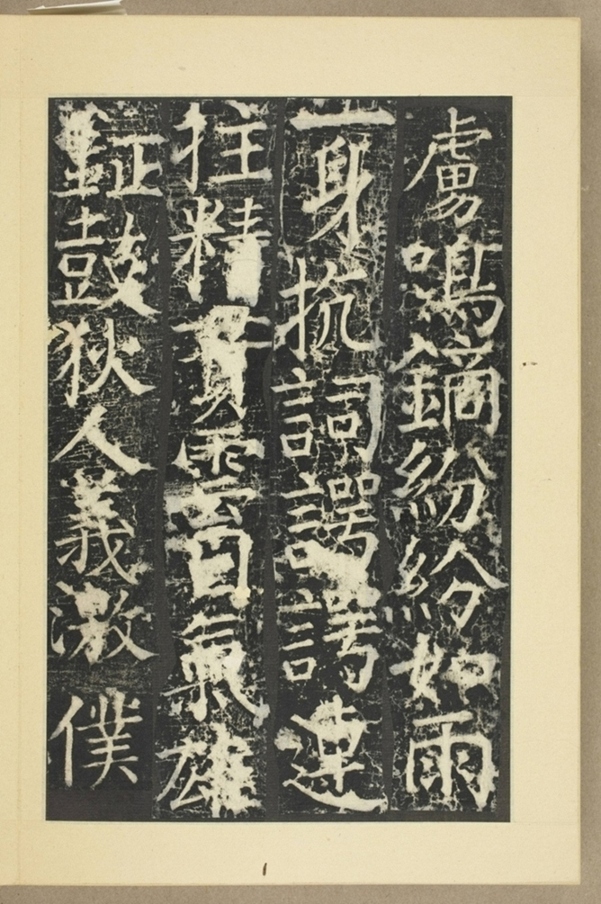 虜鳴鏑紛紛如雨
一身抗詞諤諤連
拄精貫雲霄氣雄
鉦鼓狄人義激僕